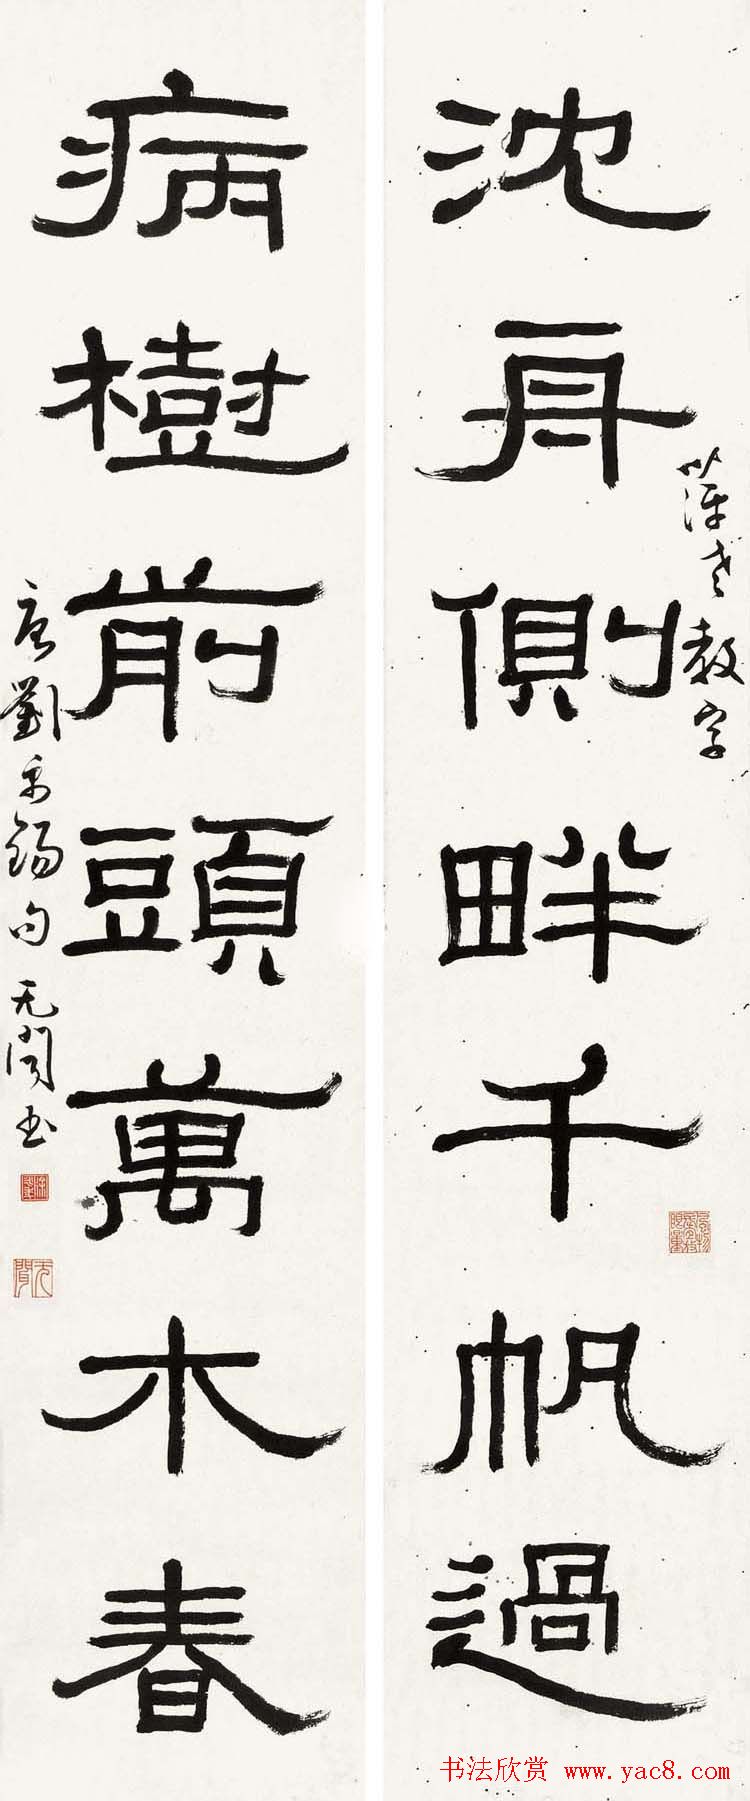 沈舟側畔千帆過
萍老教字
病樹前頭萬木春
唐劉禹錫句 无聞书
无聞
书法欣赏 www.yac8.com